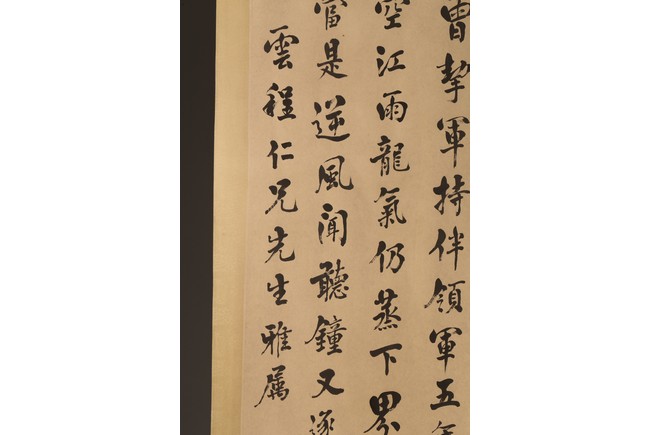 曾挈軍持伴領軍五年
空江雨龍氣仍蒸下界
當是逆風聞聽鐘又
雲程仁兄先生雅屬